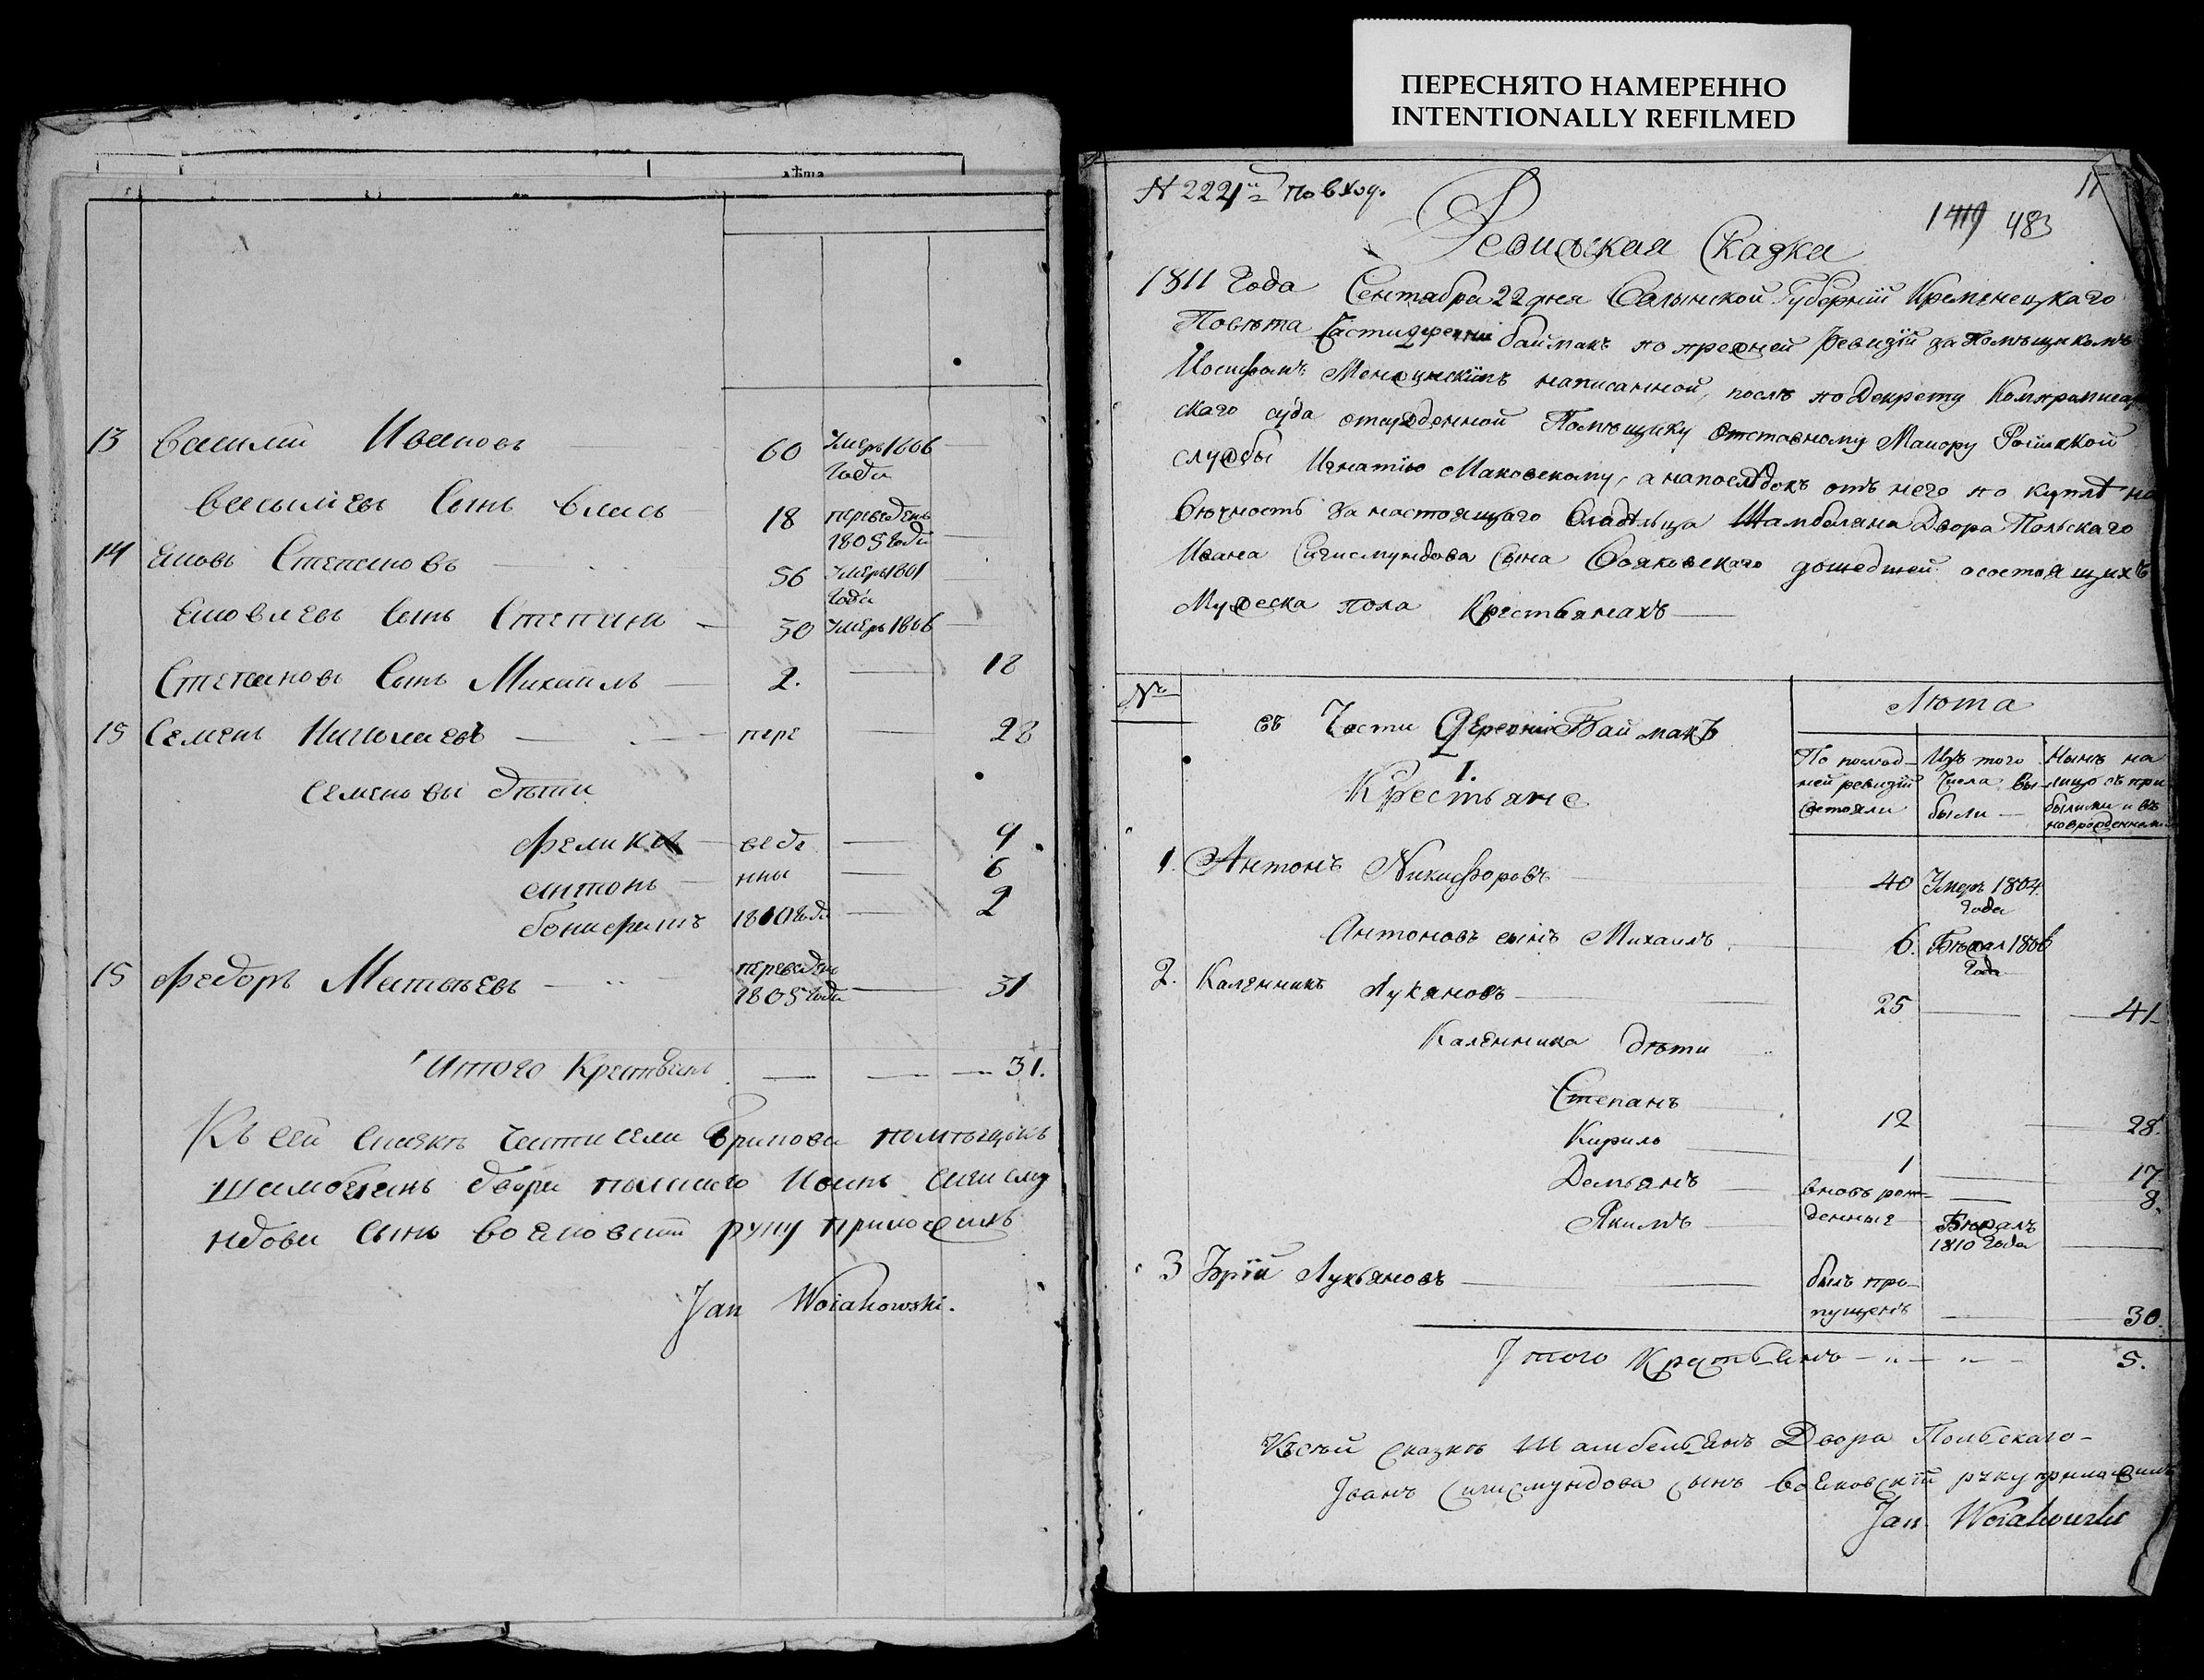 ПЕРЕСНЯТО НАМЕРЕННО
INTENTIONALLY REFILMED
лѣта
13 Василий Ивановъ 60 Умеръ 1806 Года
Васильевъ Сынъ Власъ 18 переведенъ 1805 Года
14 Яковъ Степановъ 56 Умеръ 1801 Года
Яковлевъ Сынъ Степанъ 30 Умеръ 1806
Степановъ Сынъ Михайлъ 2. 12
15 Семенъ Николаевъ пере 28
Семеновы дѣти
Феликсъ веде 9
антонъ нны 6
бонифатъ 1810 Года 2
15 Федоръ Матвѣевъ переведен 1805 Года 31
Итого Крестьянъ 31.
Къ сей сказкѣ части села помѣщикъ
шамбелянъ двора полскаго Иванъ сигисму
ндовъ сынъ вояковский руку приложилъ
Jan Woiakowski.
N 222 по вход.
11
1419 483
Ревизская Сказка
1811 Года Сентября 22 дня Волынской Губернїи Кременецкаго
Повѣта Части деревни баймакъ по прежней Ревизїи за Помѣщикомъ
Иосифомъ написанной, послѣ по Декрету
скаго суда отсужденной Помѣщику Отставному Маиору Россїйской
службы Игнатїю Маковскому, а напослѣдокъ отъ него по куплѣ на
вѣчность за настоящаго Владѣльца Шамбеляна Двора Польскаго
Ивана Сигисмундова Сына Вояковскаго дошедшей о состоящихъ
Мужеска пола Крестьянахъ
№ въ Части Деревни Баймакъ Лѣта
1. Крестьяне
По послѣд-ней ревизїи состояли
Изъ того Числа вы-были
Нынѣ на лицо съ при былыми и въ новрожденными
1. Антонъ Никифоровъ 40 Умеръ 1804 Года
Антоновъ сынъ Михаилъ 6. Бѣжал 1806 Года
2. Каленникъ Лукяновъ 25 41
Каленника дѣти
Степанъ 12 28.
Кирило 1 17
Демьянъ вновь рож- 8.
Якимъ денные Бѣжалъ 1810 Года
3 Юрїй Лукьяновъ былъ про-пущенъ 30.
Итого Крестьянъ 5.
Къ сей сказкѣ Шамбельянъ Двора Польскаго-
Іванъ Сигисмундова сынъ Вояковскїй руку приложилъ
Jan Woiakowski